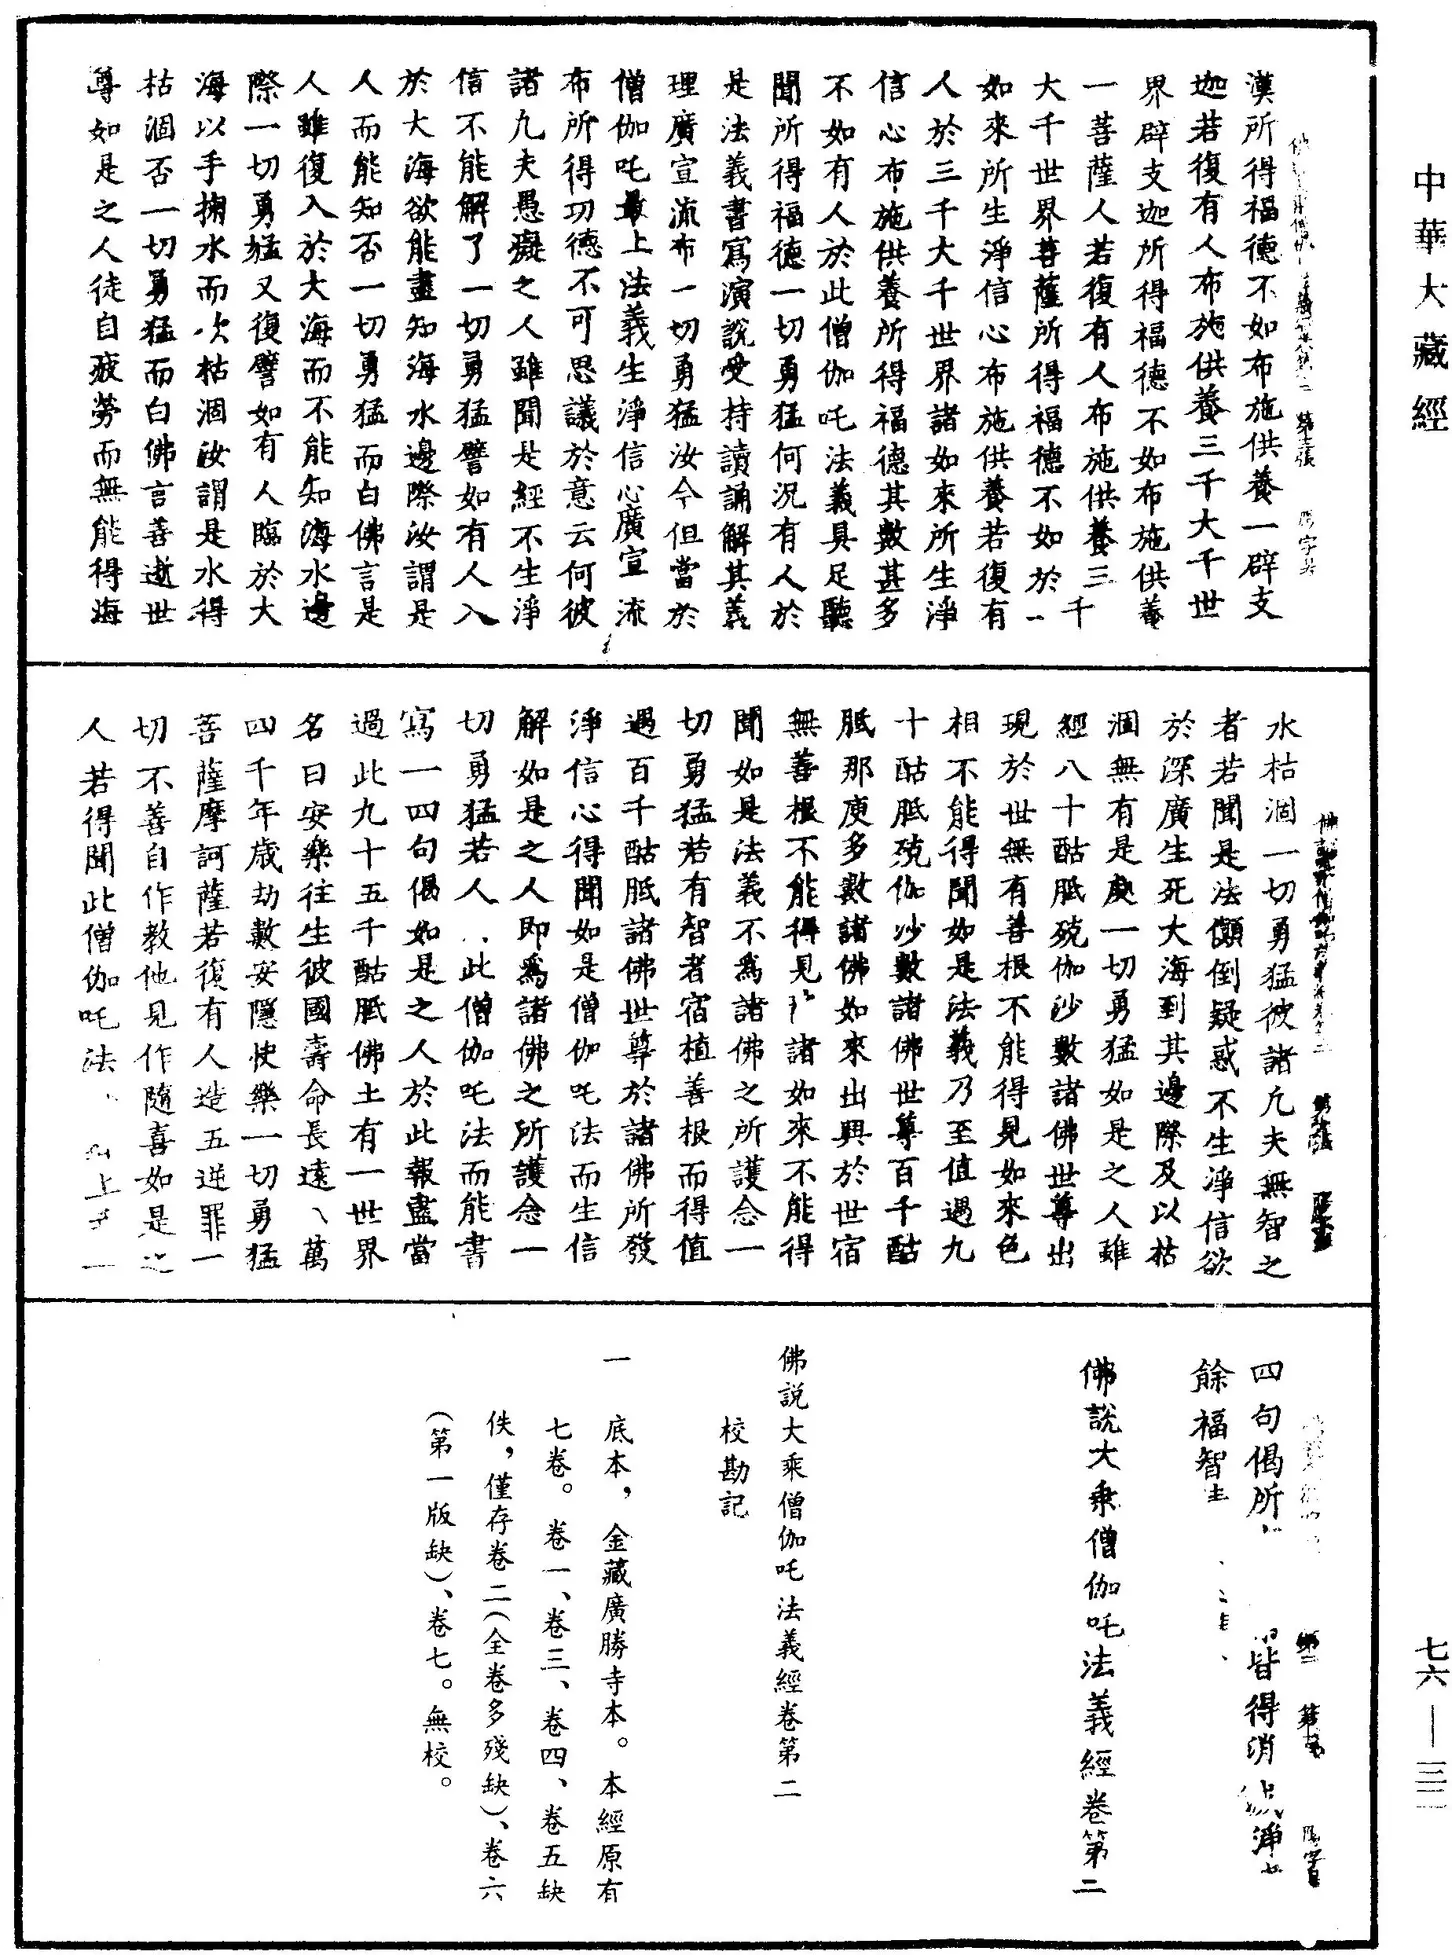 中華大藏經
漢所得福德不如布施供養一辟支
迦若復有人布施供養三千大千世
界辟支迦所得福德不如布施供養
一菩薩人若復有人布施供養三千
大千世界菩薩所得福德不如於一
如來所生淨信心布施供養若復有
人於三千大千世界諸如來所生淨
信心布施供養所得福德其數甚多
不如有人於此僧伽吒法義具足聽
聞所得福德一切勇猛何況有人於
是法義書寫演說受持讀誦解其義
理廣宣流布一切勇猛汝今但當於
僧伽吒最上法義生淨信心廣宣流
布所得功德不可思議於意云何彼
諸凡夫愚癡之人雖聞是經不生淨
信不能解了一切勇猛譬如有人入
於大海欲能盡知海水邊際汝謂是
人而能知否一切勇猛而白佛言是
人雖復入於大海而不能知海水邊
際一切勇猛又復譬如有人臨於大
海以手掬水而欲枯涸汝謂是水得
枯涸否一切勇猛而白佛言善逝世
尊如是之人徒自疲勞而無能得海
水枯涸一切勇猛彼諸凡夫無智之
者若聞是法顛倒疑惑不生淨信欲
於深廣生死大海到其邊際及以枯
涸無有是處一切勇猛如是之人雖
經八十酤胝殑伽沙數諸佛世尊出
現於世無有善根不能得見如來色
相不能得聞如是法義乃至值遇九
十酤胝殑伽沙數諸佛世尊百千酤
胝那庾多數諸佛如來出興於世宿
無善根不能得見 諸如來不能得
聞如是法義不為諸佛之所護念一
切勇猛若有智者宿植善根而得值
遇百千酤胝諸佛世尊於諸佛所發
淨信心得聞如是僧伽吒法而生信
解如是之人即爲諸佛之所護念一
切勇猛若人 此僧伽吒法而能書
寫一四句偈如是之人於此報盡當
過此九十五千酤胝佛土有一世界
名曰安樂往生彼國壽命長遠 萬
四千年歲劫數安隱快樂一切勇猛
菩薩摩訶薩若復有人造五逆罪一
切不善自作教他見作隨喜如是之
人若得聞此僧伽吒法 上 一
四句偈所 皆得消 淨
餘福智
佛說大乘僧伽吒法義經卷第二
佛説大乘僧伽吒法義經卷第二
校勘記
一 底本，金藏廣勝寺本。本經原有
七卷。卷一、卷三、卷四、卷五缺
佚，僅存卷二(全卷多殘缺)、卷六
(第一版缺)、卷七。無校。
七六——三二